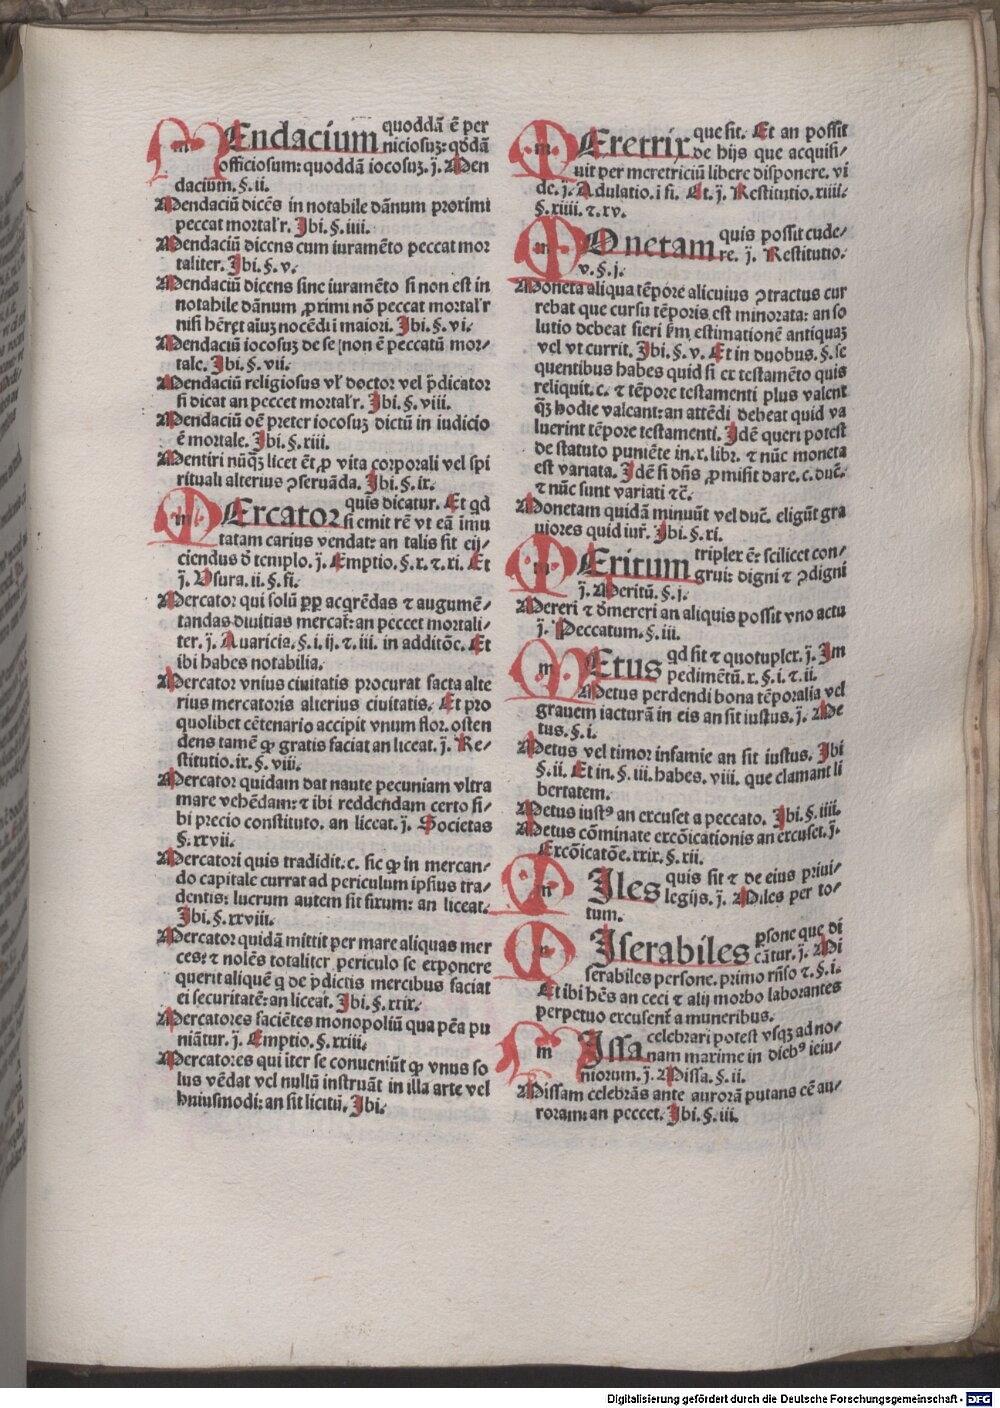 MEndacium quoddã ẽ per
niciosuꝫ: qđdã
officiosum: quoddã iocosuꝫ. j. Men
dacium. §. ii.
Mendaciũ dicẽs in notabile dãnum proximi
peccat mortal'r. Ibi. §. iiii.
Mendaciũ dicens cum iuramẽto peccat mor
taliter. Ibi. §. v.
Mendaciũ dicens sine iuramẽto si non est in
notabile dãnum ꝓximi nõ peccat mortal'r
nisi hẽret aĩuꝫ nocẽdi ĩ maiori. Ibi. §. vi.
Mendaciũ iocosuꝫ de se non ẽ peccatũ mor/
tale. Ibi. §. vii.
Mendaciũ religiosus vl' doctor vel p̃dicator
si dicat an peccet mortal'r. Ibi. §. viii.
Mendaciũ oẽ preter iocosuꝫ dictũ in iudicio
ẽ mortale. Ibi. §. xiii.
Mentiri nũqꝫ licet ẽt ꝓ vita corporali vel spi
rituali alterius ꝯseruãda. Ibi. §. ix.
MErcator quis dicatur. Et qd
si emit rẽ vt eã imu
tatam carius vendat: an talis sit eij/
ciendus ð templo. j. Emptio. §. x. ⁊. xi. Et
j. Vsura. ii. §. fi.
Mercator qui solũ ꝓp acqrẽdas ⁊ augumẽ/
tandas diuitias mercat᷑: an peccet mortali/
ter. j. Auaricia. §. i. ij. ⁊. iii. in additõe. Et
ibi habes notabilia.
Mercator vnius ciuitatis procurat facta alte
rius mercatoris alterius ciuitatis. Et pro
quolibet cẽtenario accipit vnum flor. osten
dens tamẽ ꝙ gratis faciat an liceat. j. Re/
stitutio. ix. §. viii.
Mercator quidam dat naute pecuniam vltra
mare vehẽdam: ⁊ ibi reddendam certo si/
bi precio constituto. an liceat. j. Societas
§. xxvii.
Mercatori quis tradidit. c. sic ꝙ in mercan/
do capitale currat ad periculum ipsius tra/
dentis: lucrum autem sit fixum: an liceat.
Ibi. §. xxviii.
Mercator quidã mittit per mare aliquas mer
ces: ⁊ nolẽs totaliter periculo se exponere
querit aliquẽ q de p̃dictis mercibus faciat
ei securitatẽ: an liceat. Ibi. §. xxix.
Mercatores faciẽtes monopoliũ qua pẽa pu
niãtur. j. Emptio. §. xxiii.
Mercatores qui iter se conueniũt ꝙ vnus so
lus vẽdat vel nullũ instruãt in illa arte vel
huiusmodi: an sit licitũ. Ibi.
MEretrix que sit. Et an possit
de hijs que acquisi/
uit per meretriciũ libere disponere. vi
de. j. Adulatio. i fi. Et. j. Restitutio. xiiii.
§. xiiii. ⁊. xv.
MOnetam quis possit cude/
re. j. Restitutio.
v. §. j.
Moneta aliqua tẽpore alicuius ꝯtractus cur
rebat que cursu tẽporis est minorata: an so
lutio debeat fieri ẜm estimationẽ antiquaꝫ
vel vt currit. Ibi. §. v. Et in duobus. §. se
quentibus habes quid si ex testamẽto quis
reliquit. c. ⁊ tẽpore testamenti plus valent
qꝫ hodie valeant: an attẽdi debeat quid va
luerint tẽpore testamenti. Idẽ queri potest
de statuto puniẽte in. x. libr. ⁊ nũc moneta
est variata. Idẽ si dñs ꝓmisit dare. c. duc̃.
⁊ nũc sunt variati ⁊c̃.
Monetam quidã minuũt vel duc̃. eligũt gra
uiores quid iur̃. Ibi. §. xi.
MEritum triplex ẽ: scilicet con/
grui: digni ⁊ ꝯdigni
j. Meritũ. §. j.
Mereri ⁊ ðmereri an aliquis possit vno actu
j. Peccatum. §. iii.
MEtus qd sit ⁊ quotuplex. j. Im
pedimẽtũ. x. §. i. ⁊. ii.
Metus perdendi bona tẽporalia vel
grauem iacturã in eis an sit iustus. j. Me
tus. §. i.
Metus vel timor infamie an sit iustus. Ibi
§. ii. Et in. §. iii. habes. viii. que clamant li
bertatem.
Metus iustꝰ an excuset a peccato. Ibi. §. iiii.
Metus cõminate excõicationis an excuset. j.
Excõicatõe. xxix. §. xii.
MIles quis sit ⁊ de eius priui/
legijs. j. Miles per to/
tum.
MIserabiles ꝑsone que di
cãtur. j. Mi
serabiles persone. primo rñso ⁊. §. i.
Et ibi hẽs an ceci ⁊ alij morbo laborantes
perpetuo excusent᷑ a muneribus.
MIssa celebrari potest vsqꝫ ad no/
nam maxime in diebꝰ ieiu/
niorum. j. Missa. §. ii.
Missam celebrãs ante aurorã putans cẽ au/
roram: an peccet. Ibi. §. iii.
Digitalisierung gefördert durch die Deutsche Forschungsgemeinschaft - DFG